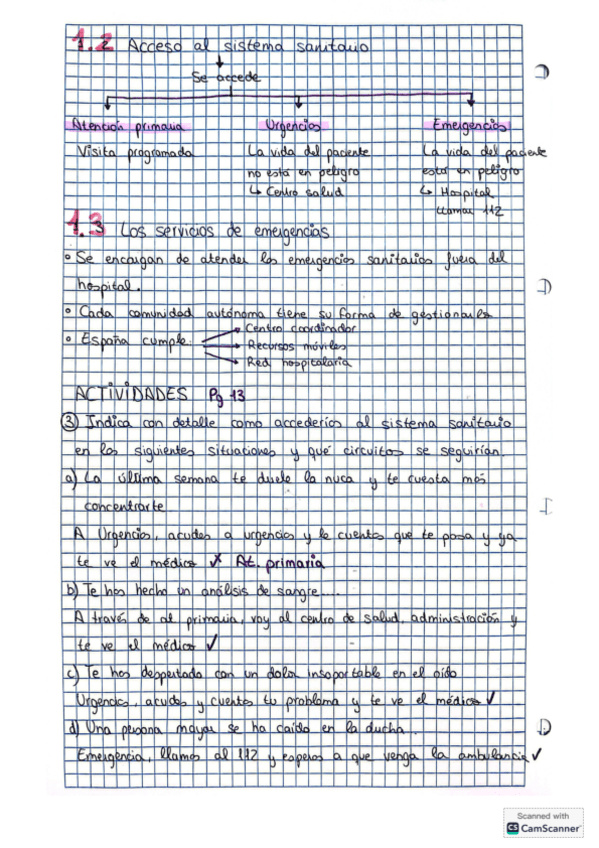 1.2 Acceso al sistema sanitario
Se accede
Atención primaria Urgencias Emergencias
Visita programada La vida del paciente La vida del paciente
no está en peligro está en peligro
↳ Centro salud ↳ Hospital
Llamar 112
1.3 Los servicios de emergencias
• Se encargan de atender las emergencias sanitarias fuera del
hospital.
• Cada comunidad autónoma tiene su forma de gestionarlo
• España cumple: → Centro coordinador
→ Recursos móviles
→ Red hospitalaria
ACTIVIDADES Pg 13
③ Indica con detalle como accederías al sistema sanitario
en las siguientes situaciones y qué circuitos se seguirían.
a) La última semana te duele la nuca y te cuesta más
concentrarte
A Urgencias, acudes a urgencias y le cuentas que te pasa y ya
te ve el médico ✗ At. primaria
b) Te has hecho un análisis de sangre....
A través de at primaria, voy al centro de salud, administración y
te ve el médico ✓
c) Te has despertado con un dolor insoportable en el oído
Urgencias, acudes y cuentas tu problema y te ve el médico ✓
d) Una persona mayor se ha caído en la ducha.
Emergencia, llamas al 112 y esperas a que venga la ambulancia ✓
Scanned with
CS CamScanner